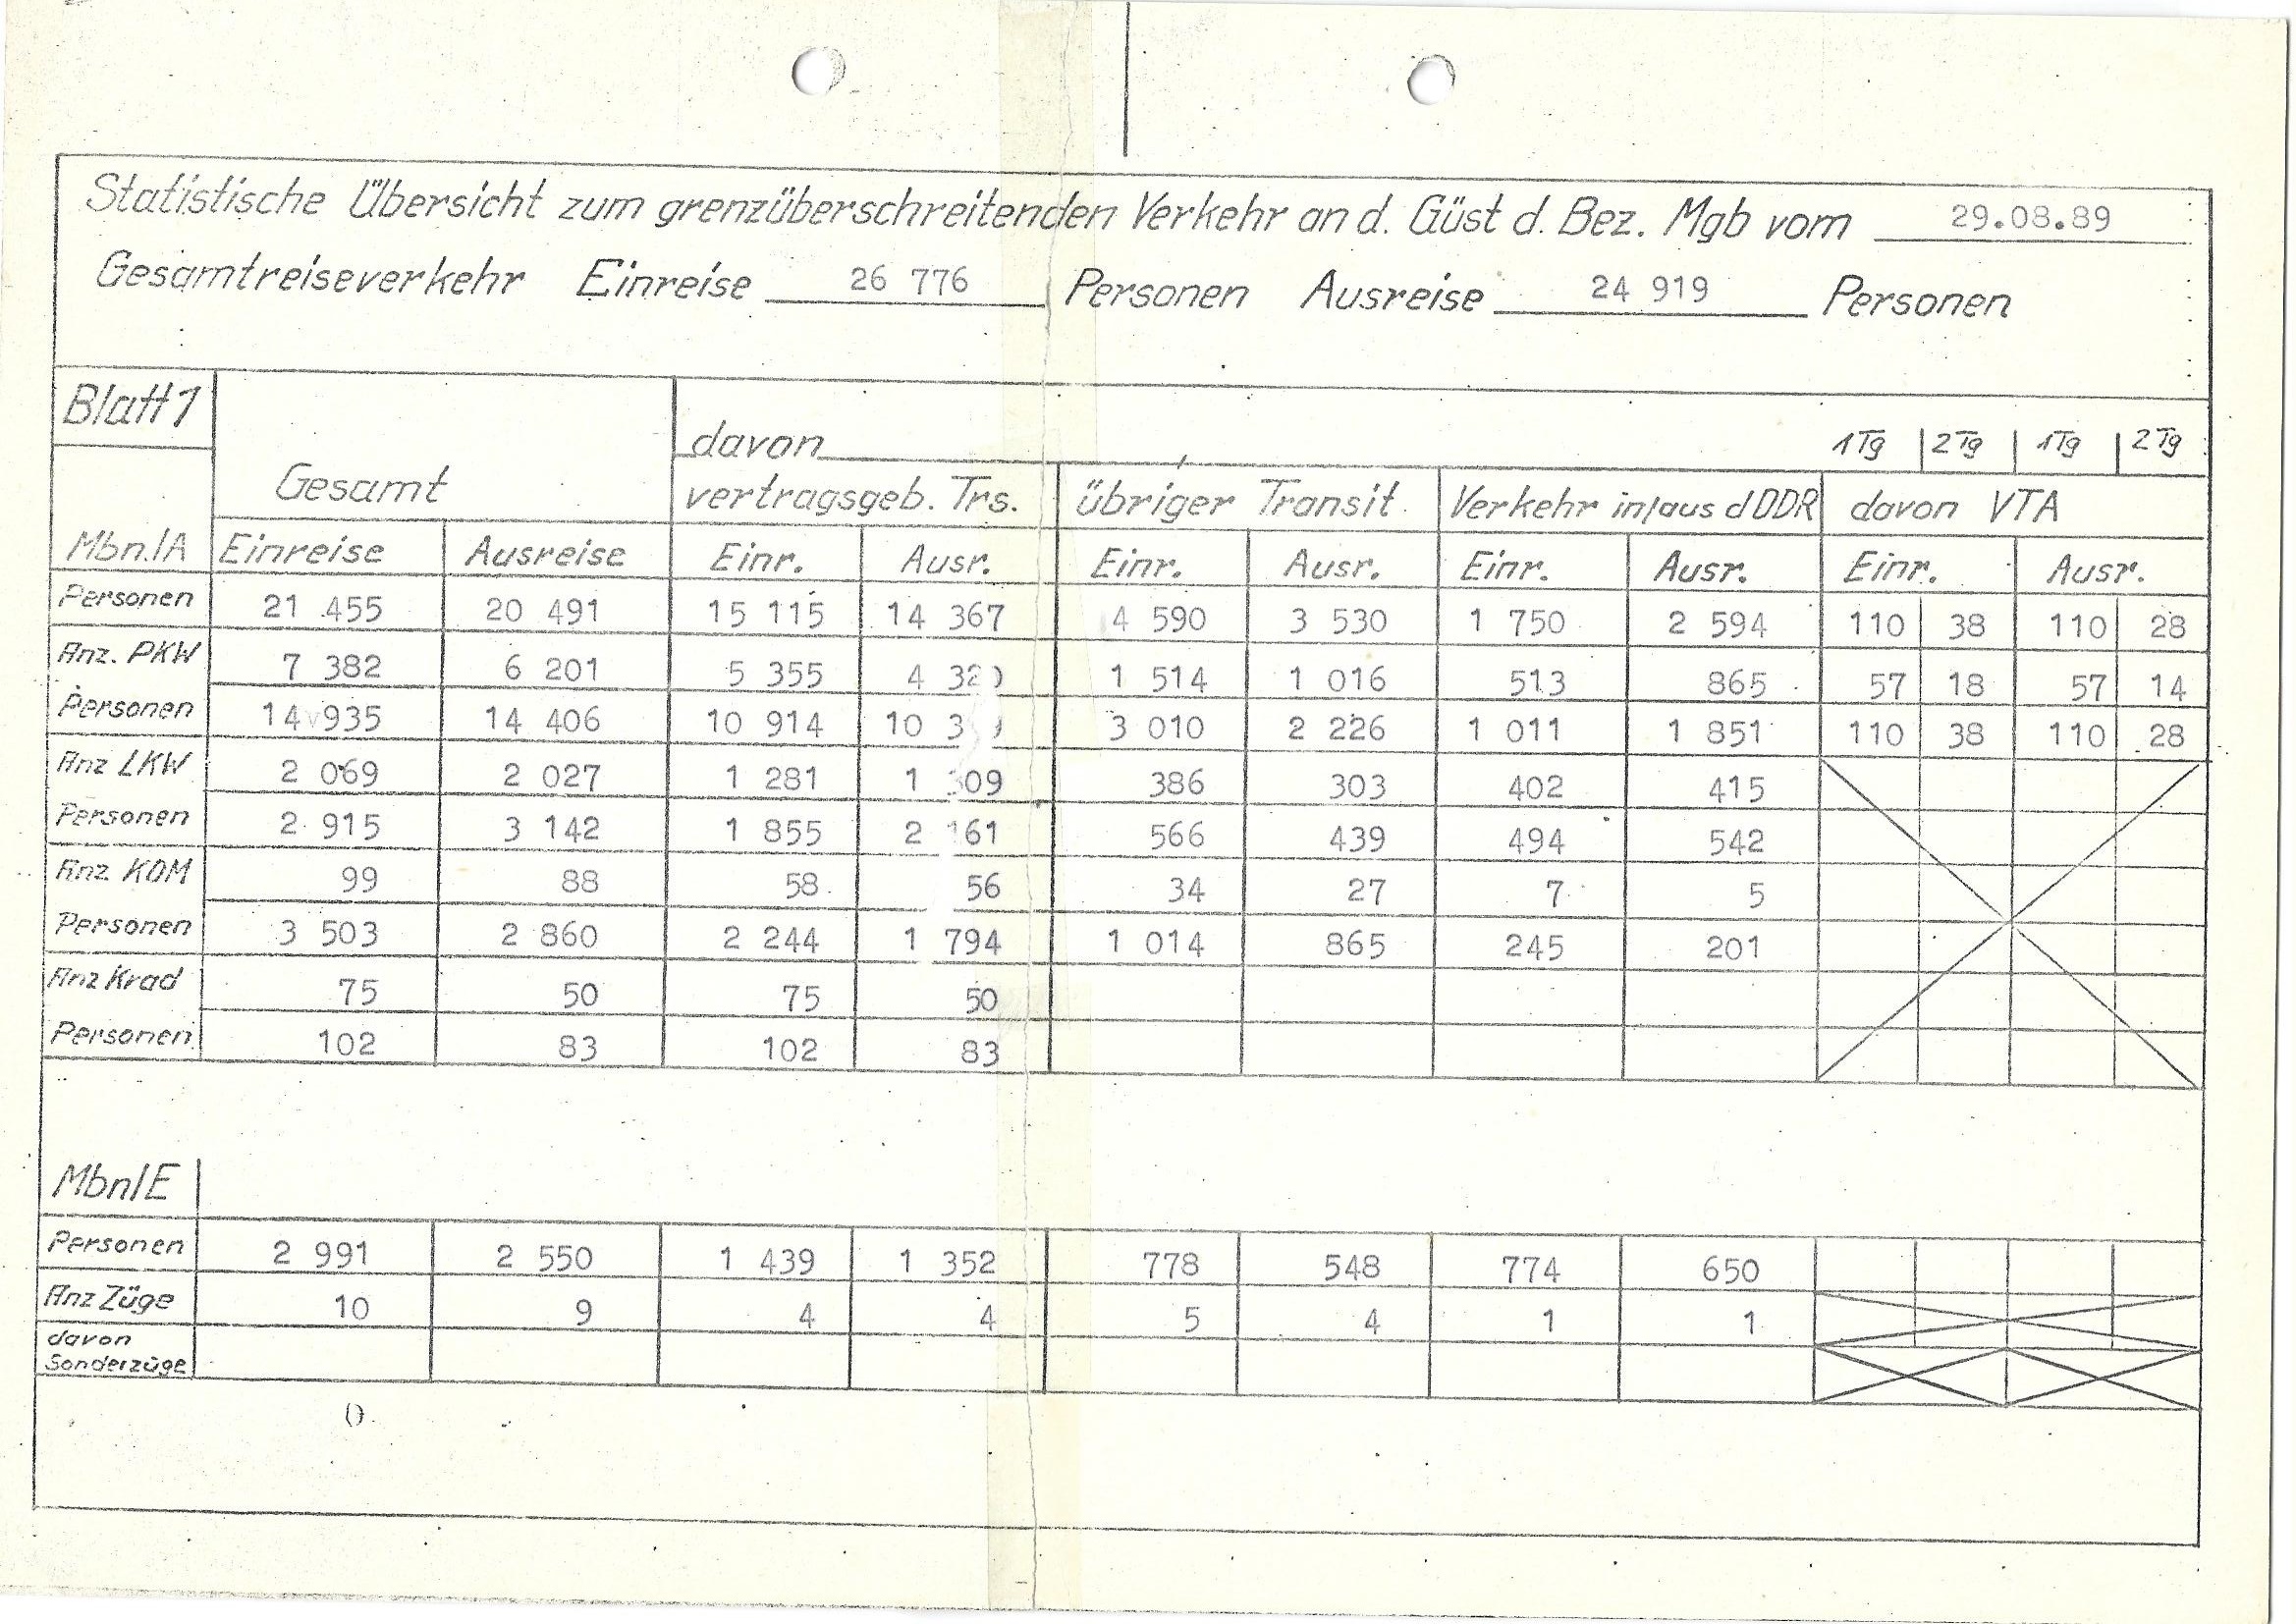 Statistische Übersicht zum grenzüberschreitenden Verkehr an d. Güst d. Bez. Mgb vom 29.08.89
Gesamtreiseverkehr Einreise 26 776 Personen Ausreise 24 919 Personen
Blatt 1
davon 1Tg 2Tg 1Tg 2Tg
Gesamt vertragsgeb. Trs. übriger Transit. Verkehr in/aus d DDR davon VTA
Mbn.IA Einreise Ausreise Einr. Ausr. Einr. Ausr. Einr. Ausr. Einr. Ausr.
Personen 21 455 20 491 15 115 14 367 4 590 3 530 1 750 2 594 110 38 110 28
Anz. PKW 7 382 6 201 5 355 4 1 514 1 016 513 865 57 18 57 14
Personen 14 935 14 406 10 914 10 3 010 2 226 1 011 1 851 110 38 110 28
Anz LKW 2 069 2 027 1 281 1 386 303 402 415
Personen 2 915 3 142 1 855 2 161 566 439 494 542
Anz. KOM 99 88 58 56 34 27 7 5
Personen 3 503 2 860 2 244 1 794 1 014 865 245 201
Anz Krad 75 50 75 50
Personen 102 83 102 83
Mbn/E
Personen 2 991 2 550 1 439 1 352 778 548 774 650
Anz Züge 10 9 4 4 5 4 1 1
davon
Sonderzüge